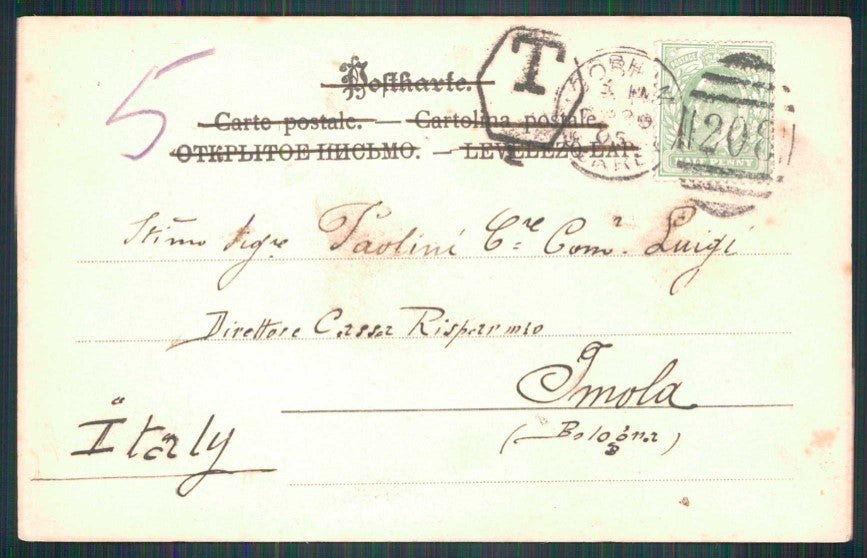 5
Postkarte.
T
Carte postale. — Cartolina postale.
ОТКРЫТОЕ ПИСЬМО. — LEVELEZŐ-LAP.
208
HALF PENNY
Stimo Sigre Paolini Cre Comr. Luigi
Direttore Cassa Risparmio
Imola
(Bologna)
Italy